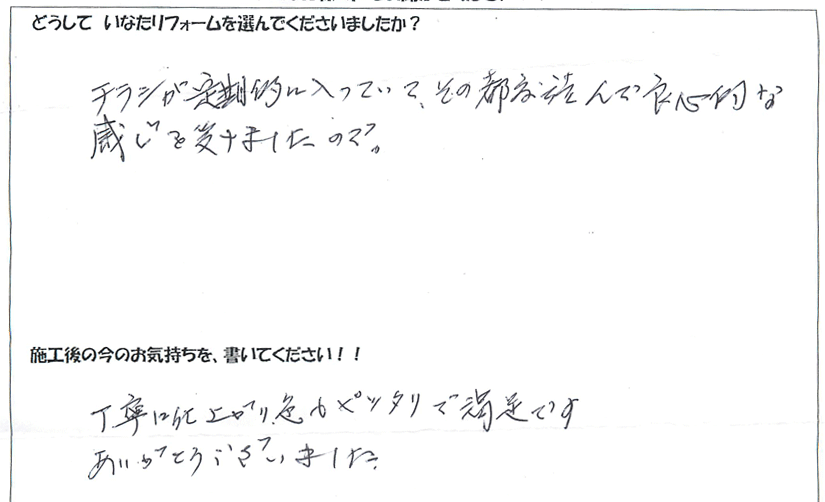 どうして いなたリフォームを選んでくださいましたか？
チラシが定期的に入っていて、その都度読んで良心的な
感じを受けましたので。
施工後の今のお気持ちを、書いてください！！
丁寧に仕上がり、色もピッタリで満足です
ありがとうございました。